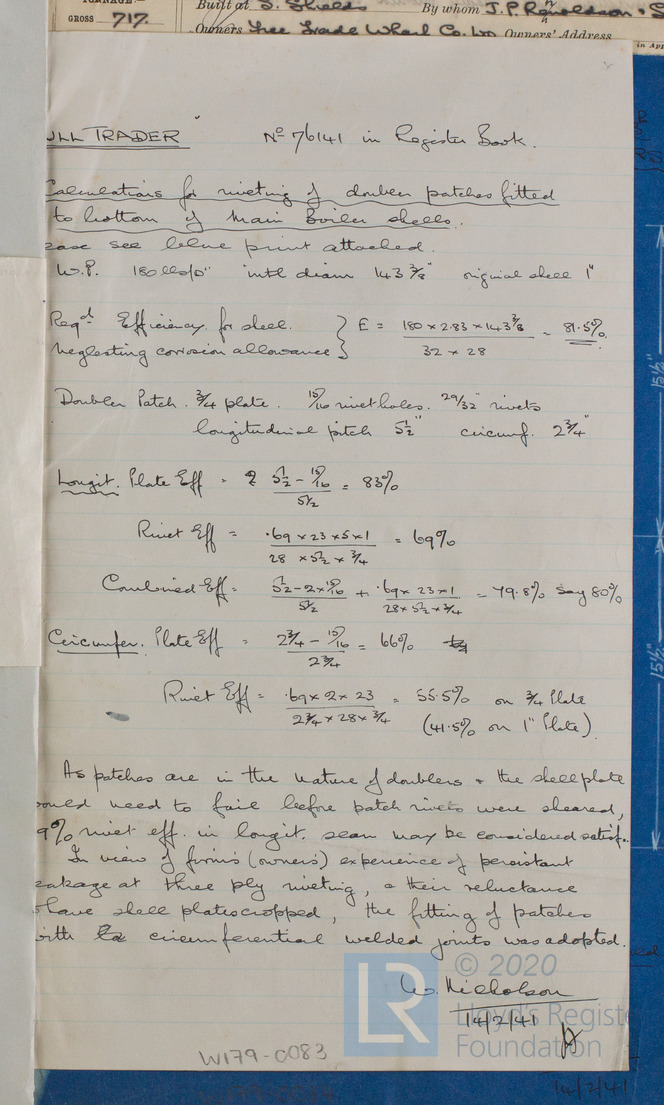 TONNAGE.—
GROSS 717.
Built at S. Shields By whom J. P. Renoldson & S
Owners Free Trade Wharf Co. Ltd Owners' Address
in Ap
ULL TRADER" No 76141 in Register Book.
Calculations for riveting of doubler patches fitted
to bottom of Main Boiler shells.
ease see blue print attached.
W.P. 180 lbs/□" intl diam 143 3/8" original shell 1"
Reqd Efficiency for shell. } E = 180 × 2.83 × 143 3/8 / 32 × 28 = 81.5%
neglecting corrosion allowance }
Doubler Patch. 3/4 plate. 15/16 rivet holes. 29/32" rivets
longitudinal pitch 5 1/2" circumf. 2 3/4"
Longit. Plate Eff = 5 1/2 - 15/16 / 5 1/2 = 83%
Rivet Eff = .69 × 23 × 5 × 1 / 28 × 5 1/2 × 3/4 = 69%
Combined Eff = 5 1/2 - 2 × 15/16 / 5 1/2 + .69 × 23 × 1 / 28 × 5 1/2 × 3/4 = 79.8% say 80%
Circumfer. Plate Eff = 2 3/4 - 15/16 / 2 3/4 = 66%
Rivet Eff = .69 × 2 × 23 / 2 3/4 × 28 × 3/4 = 55.5% on 3/4 Plate
(41.5% on 1" Plate)
As patches are in the nature of doublers & the shell plate
ould need to fail before patch rivets were sheared,
9% rivet eff. in longit. seam may be considered satisf.
In view of firm's (owners) experience of persistant
eakage at three ply riveting, & their reluctance
have shell plates cropped, the fitting of patches
ith circumferential welded joints was adopted.
W. Nicholson
14/2/41
LR
© 2020
Lloyd's Registe
Foundation
W179-0083
14/2/41
15½"
15½"